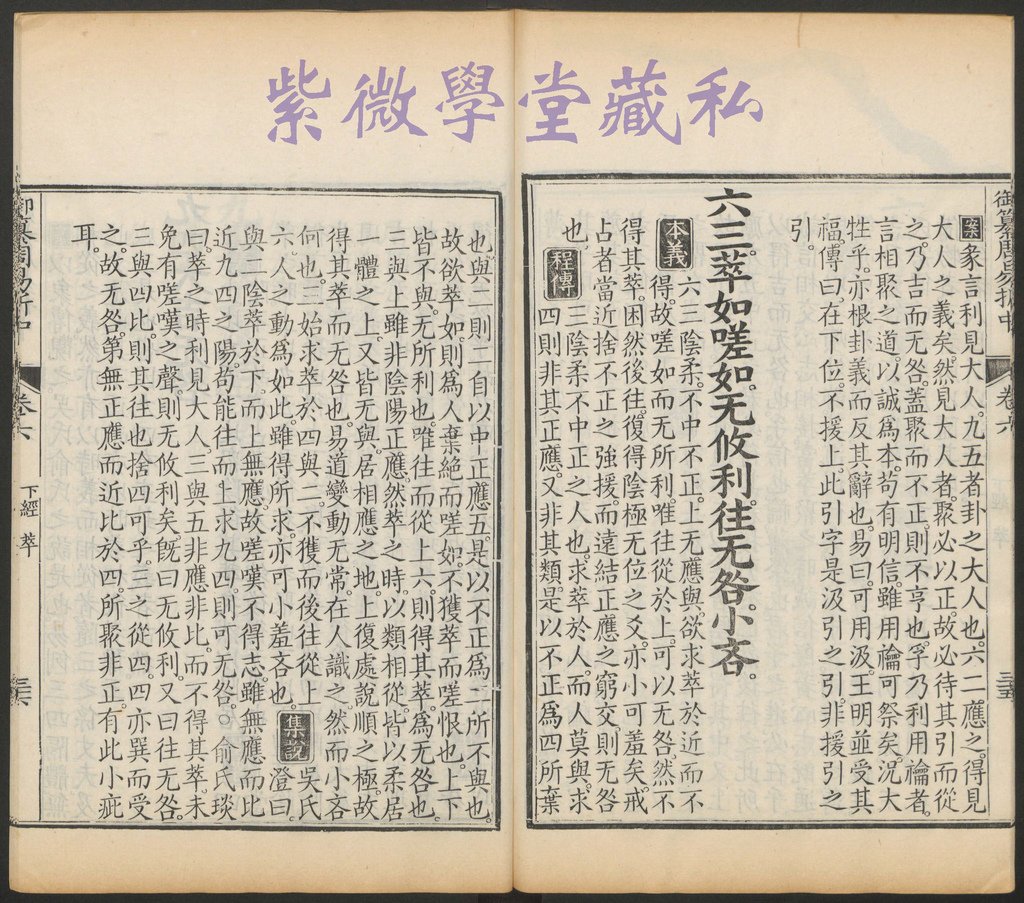 紫微學堂藏私
御纂周易折中　卷六　三五
案彖言利見大人。九五者卦之大人也。六二應之。得見
大人之義矣。然見大人者。聚必以正。故必待其引而從
之。乃吉而无咎。蓋聚而不正。則不亨也。孚乃利用禴者。
言相聚之道。以誠爲本。苟有明信。雖用禴可祭矣。況大
牲乎。亦根卦義而反其辭也。易曰。可用汲。王明並受其
福。傳曰。在下位。不援上。此引字是汲引之引。非援引之
引。
六三。萃如嗟如。无攸利。往无咎。小吝。
本義 六三陰柔。不中不正。上无應與。欲求萃於近而不
得。故嗟如而无所利。唯往從於上。可以无咎。然不
得其萃。困然後往。復得陰極无位之爻。亦小可羞矣。戒
占者當近捨不正之強援。而遠結正應之窮交。則无咎
也。程傳 三陰柔不中不正之人也。求萃於人而人莫與。求
四則非其正應。又非其類。是以不正為四所棄
也。與二則二自以中正應五。是以不正爲二所不與也。
故欲萃如。則爲人棄絕而嗟如。不獲萃而嗟恨也。上下
皆不與。无所利也。唯往而從上六。則得其萃。爲无咎也。
三與上雖非陰陽正應。然萃之時。以類相從。皆以柔居
一體之上。又皆无與。居相應之地。上復處說順之極。故
得其萃而无咎也。易道變動无常。在人識之。然而小吝
何也。三始求萃於四與二。不獲而後往從上
六。人之動爲如此。雖得所求。亦可小羞吝也。集說 吳氏澄曰。
與二陰萃於下。而上無應。故嗟嘆不得志。雖無應而比
近九四之陽。苟能往而上求九四。則可无咎。○俞氏琰
曰。萃之時利見大人。三與五非應非比。而不得其萃。未
免有嗟嘆之聲。則无攸利矣。旣曰无攸利。又曰往无咎。
三與四比。則其往也。捨四可乎。三之從四。四亦巽而受
之。故无咎。第無正應而近比於四。所聚非正。有此小疵
耳。
御纂周易折中　卷六　下經　萃　三六